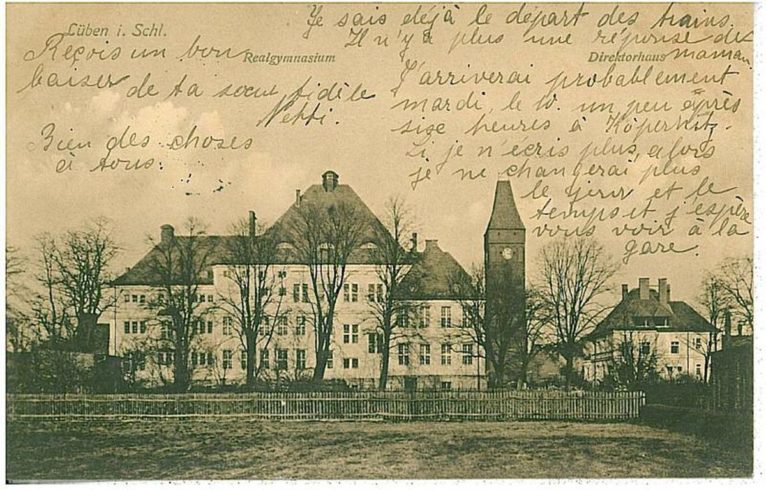 Lüben i. Schl.
Realgymnasium
Direktorhaus
Je sais déjà le départ des trains.
Il n'y a plus une réponse de
maman.
J'arriverai probablement
mardi, le 10. un peu après
sise heures à Köpernitz.
Si je n'ecris plus, alors
je ne changerai plus
le jour et le
temps et j'espère
vous voir à la
gare.
Reçois un bon
baiser de ta sœur fidèle
Netti.
Bien des choses
à tous.